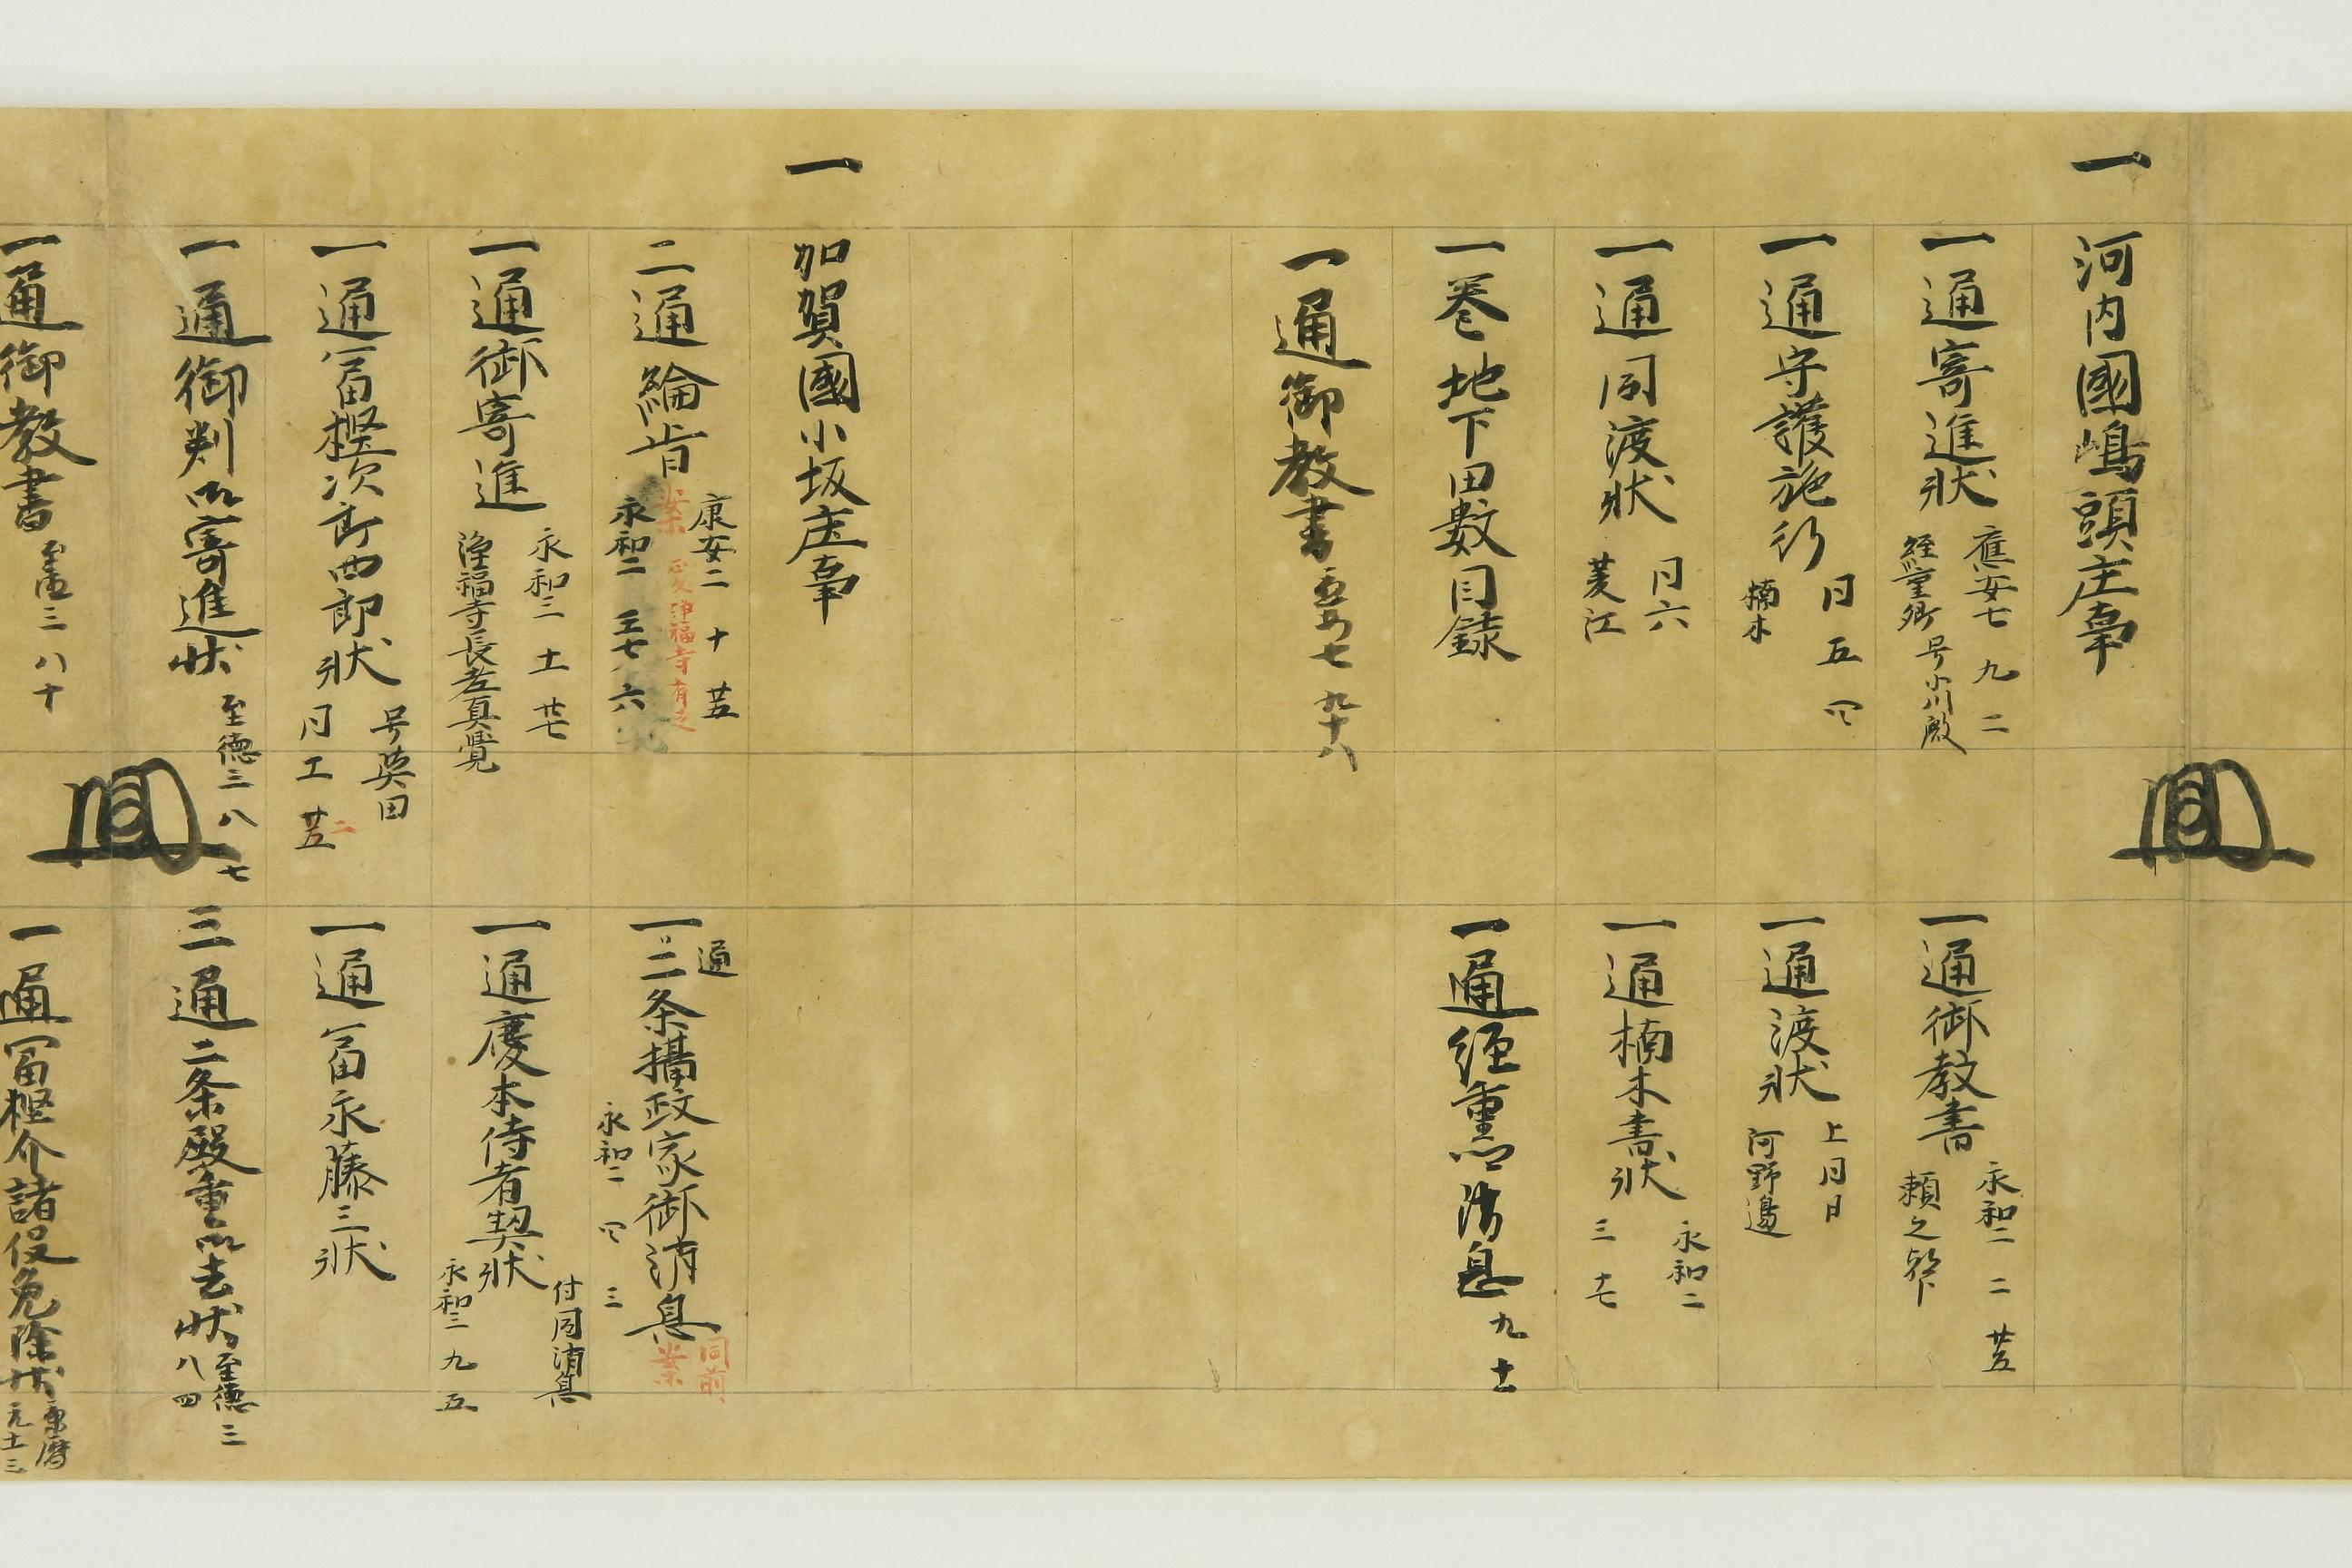 一 河内國嶋頭庄事
一通寄進狀 應安七 九 二
経重卿 号小川殿
一通御教書 永和二 二 廿五
頼之
一通守護施行 同 五 四
楠木
一通渡狀 上同日
河野邊
一通同渡狀 同六
菱江
一通楠木書狀 永和二
三 十七
一巻地下田數目録
一通経重卿消息 九 十一
一通御教書 應安七 九 十八
一 加賀國小坂庄事
二通綸旨 康安二 十 廿五
案 正文浄福寺有之
永和二 六
一通二条攝政家御消息 同前
案
永和二 四 三
一通御寄進 永和三 十一 廿七
浄福寺長老真覺
一通慶本侍者契狀 付同消息
永和三 九 五
一通冨樫次郎四郎狀 号英田
同 二 廿五
一通冨永藤三狀
一通御判御寄進狀 至徳三 八 七
三通二条殿重御去狀 至徳三
八 四
一通御教書 至徳三 八 十
一通冨樫介諸役免除狀 康暦
元 十二 三